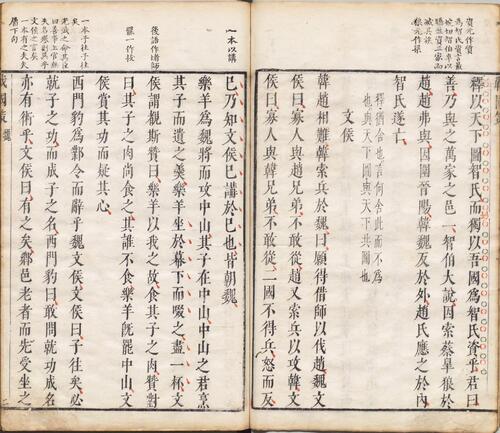 資元作質
釋以天下圖智氏而獨以吾國爲智氏資乎君曰
善乃與之萬家之邑一智伯大說因索蔡皋狼於
趙趙弗與因圍晉陽韓魏反於外趙氏應之於內
智氏遂亡
釋猶舍也言何舍此而不爲
也與天下圖與天下共圖也
文侯
韓趙相難韓索兵於魏曰願得借師以伐趙魏文
侯曰寡人與趙兄弟不敢從趙又索兵以攻韓文
侯曰寡人與韓兄弟不敢從二國不得兵怒而反
一本以講
巳乃知文侯巳講於巳也皆朝魏
樂羊爲魏將而攻中山其子在中山中山之君烹
其子而遺之羹樂羊坐於幕下而啜之盡一杯文
後語作堵師
侯謂覩斯贊曰樂羊以我之故食其子之肉贊對
曰其子之肉尚食之其誰不食樂羊旣罷中山文
侯賞其功而疑其心
西門豹爲鄴令而辭乎魏文侯文侯曰子往矣必
就子之功而成子之名西門豹曰敢問就功成名
亦有術乎文侯曰有之矣鄉邑老者而先受坐之